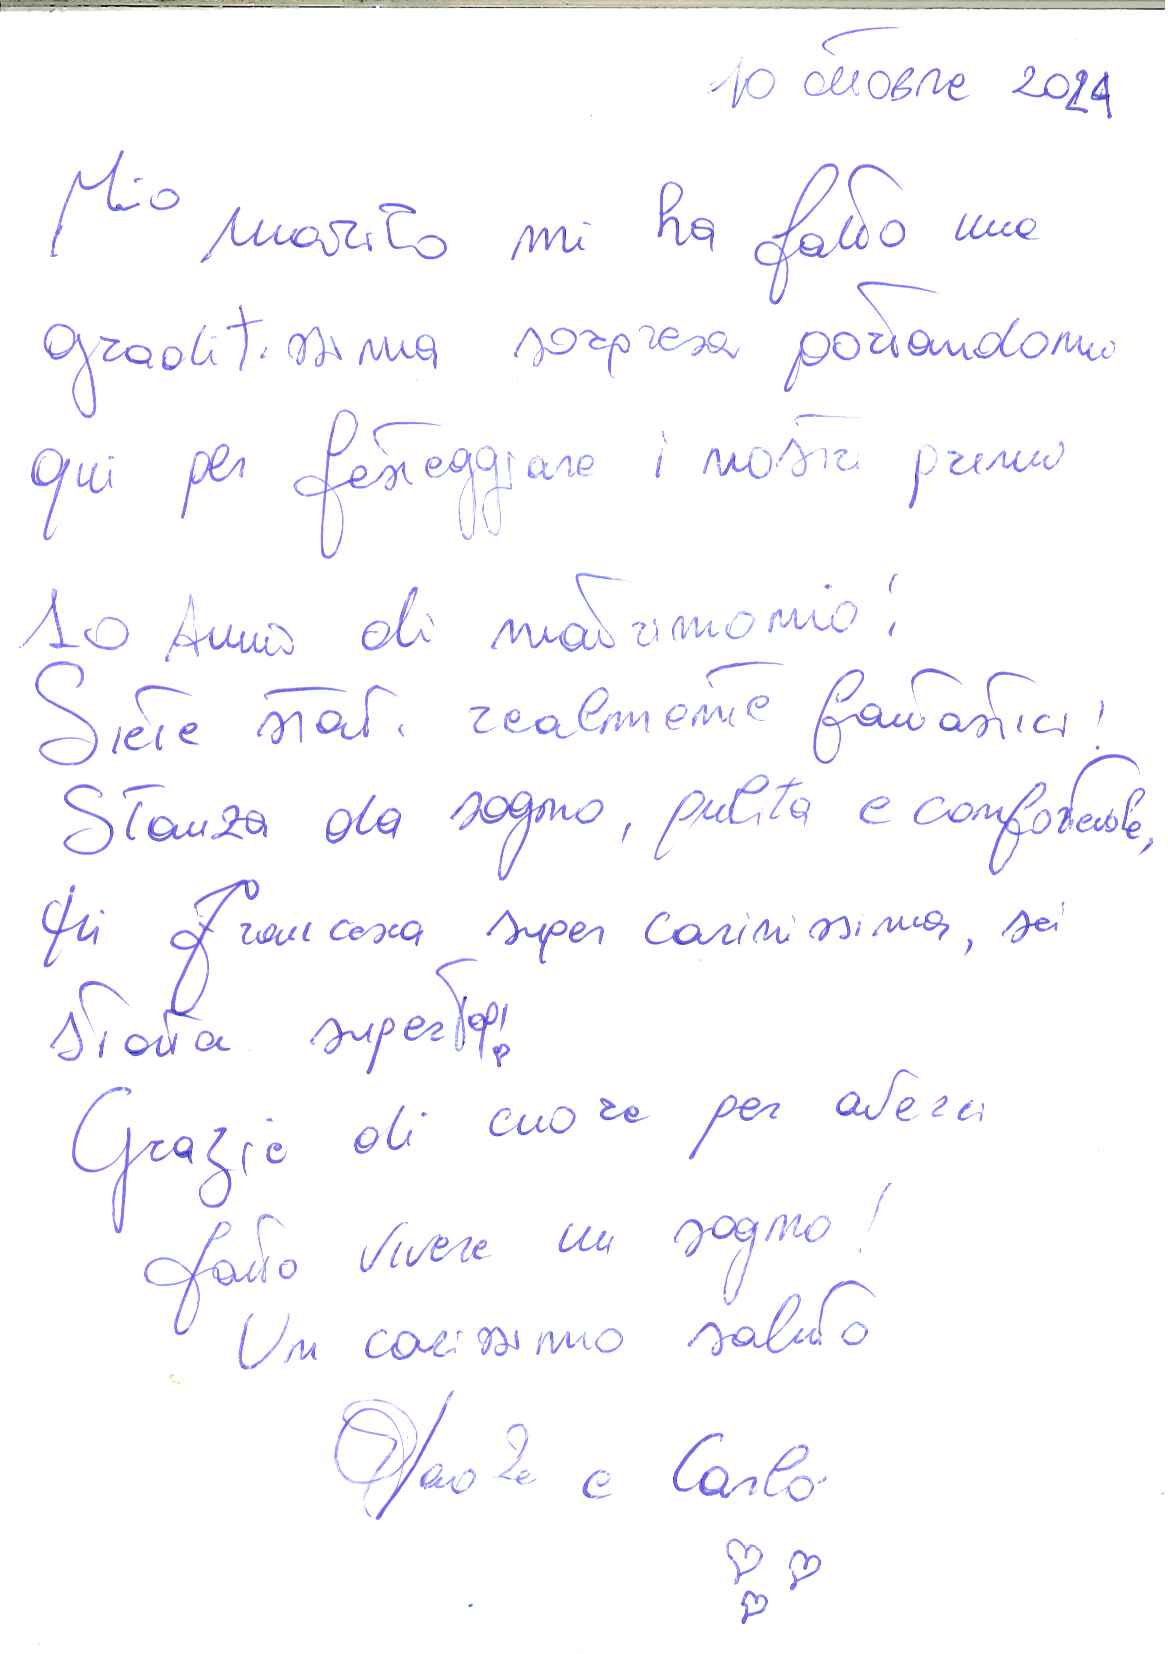 10 ottobre 2024
Mio marito mi ha fatto una
graditissima sorpresa portandomi
qui per festeggiare i nostri primi
10 Anni di matrimonio!
Siete stati realmente fantastici!
Stanza da sogno, pulita e confortevole,
tu Francesca super carinissima, sei
stata super top!
Grazie di cuore per averci
fatto vivere un sogno!
Un carissimo saluto
e Carlo